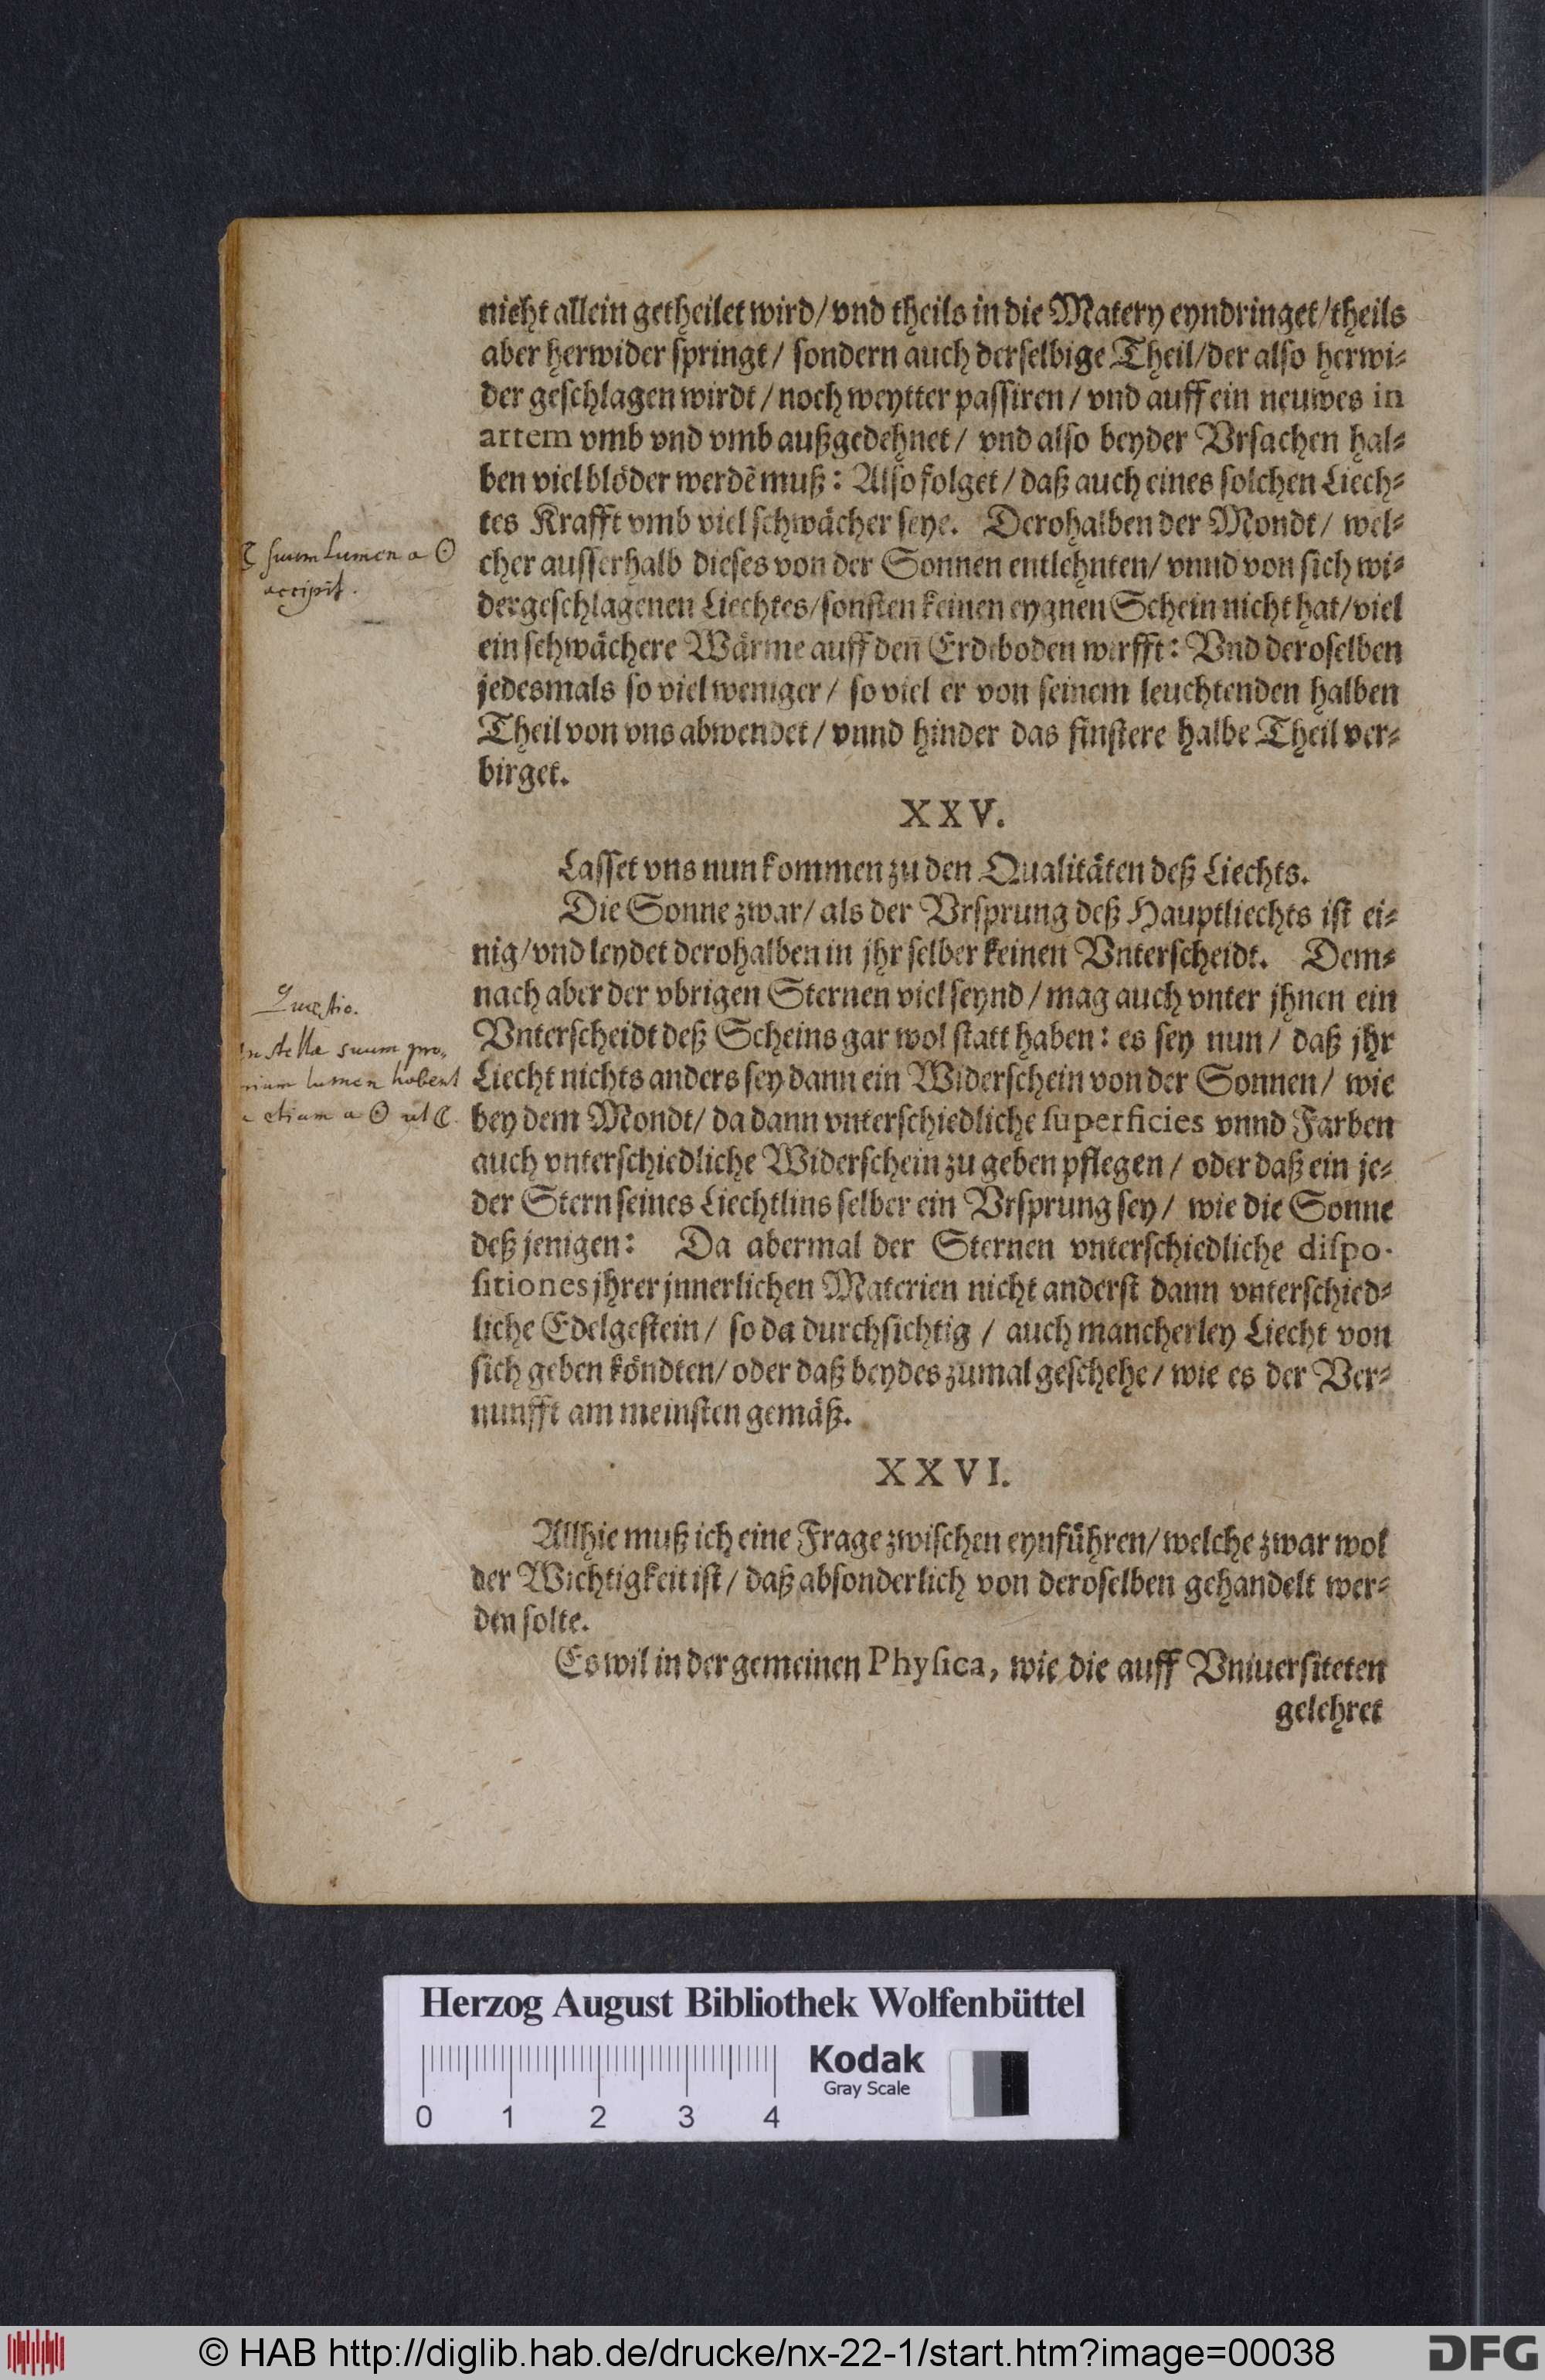 nicht allein getheilet wird/ vnd theils in die Matery eyndringet/ theils
aber herwider springt/ sondern auch derselbige Theil/ der also herwi-
der geschlagen wirdt/ noch weytter passiren/ vnd auff ein neuwes in
artem vmb vnd vmb außgedehnet/ vnd also beyder Vrsachen hal-
ben viel blöder werdẽ muß: Also folget/ daß auch eines solchen Liech-
tes Krafft vmb viel schwächer seye. Derohalben der Mondt/ wel-
☾ suum Lumen a ☉
accipit.
cher ausserhalb dieses von der Sonnen entlehnten/ vnnd von sich wi-
dergeschlagenen Liechtes/ sonsten keinen eygnen Schein nicht hat/ viel
ein schwächere Wärme auff den̄ Erdeboden wirfft: Vnd deroselben
jedesmals so viel weniger/ so viel er von seinem leuchtenden halben
Theil von vns abwendet/ vnnd hinder das finstere halbe Theil ver-
birget.
XXV.
Lasset vns nun kommen zu den Qualitäten deß Liechts.
Die Sonne zwar/ als der Vrsprung deß Hauptliechts ist ei-
nig/ vnd leydet derohalben in jhr selber keinen Vnterscheidt. Dem-
nach aber der vbrigen Sternen viel seynd/ mag auch vnter jhnen ein
Quæstio.
stellæ suum pro-
lumen habent
etiam a ☉ ut ☾.
Vnterscheidt deß Scheins gar wol statt haben: es sey nun/ daß jhr
Liecht nichts anders sey dann ein Widerschein von der Sonnen/ wie
bey dem Mondt/ da dann vnterschiedliche superficies vnnd Farben
auch vnterschiedliche Widerschein zu geben pflegen/ oder daß ein je-
der Stern seines Liechtlins selber ein Vrsprung sey/ wie die Sonne
deß jenigen: Da abermal der Sternen vnterschiedliche dispo-
sitiones jhrer jnnerlichen Materien nicht anderst dann vnterschied-
liche Edelgestein/ so da durchsichtig/ auch mancherley Liecht von
sich geben köndten/ oder daß beydes zumal geschehe/ wie es der Ver-
nunfft am meinsten gemäß.
XXVI.
Allhie muß ich eine Frage zwischen eynführen/ welche zwar wol
der Wichtigkeit ist/ daß absonderlich von deroselben gehandelt wer-
den solte.
Es wil in der gemeinen Physica, wie die auff Vniuersiteten
gelehret
Herzog August Bibliothek Wolfenbüttel
Kodak
Gray Scale
0 1 2 3 4
© HAB http://diglib.hab.de/drucke/nx-22-1/start.htm?image=00038
DFG